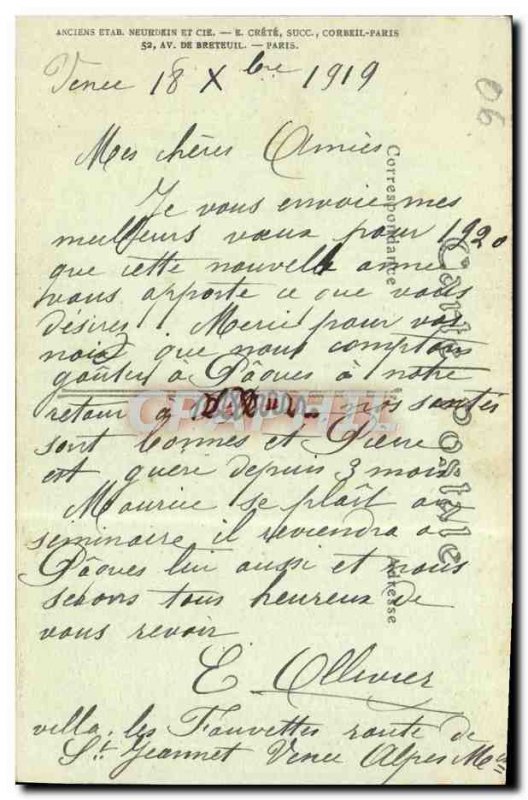 ANCIENS ETAB. NEURDEIN ET CIE. — E. CRÉTÉ, SUCC., CORBEIL-PARIS
52, AV. DE BRETEUIL. — PARIS.
Vence 18 Xbre 1919
90
Mes chères Amies
Je vous envoie mes
meilleurs vœux pour 1920
que cette nouvelle année
vous apporte ce que vous
désirez. Merci pour vos
noix que nous comptons
goûter à Pâques à notre
retour à nos santés
sont bonnes et Pierre
est guéri depuis 3 mois.
Maurice se plaît au
séminaire il reviendra à
Pâques lui aussi et nous
serons tous heureux de
vous revoir
E Ollivier
villa les Fauvettes route de
St Jeannet Vence Alpes Mmes
Carte Postale
Correspondance
Adresse